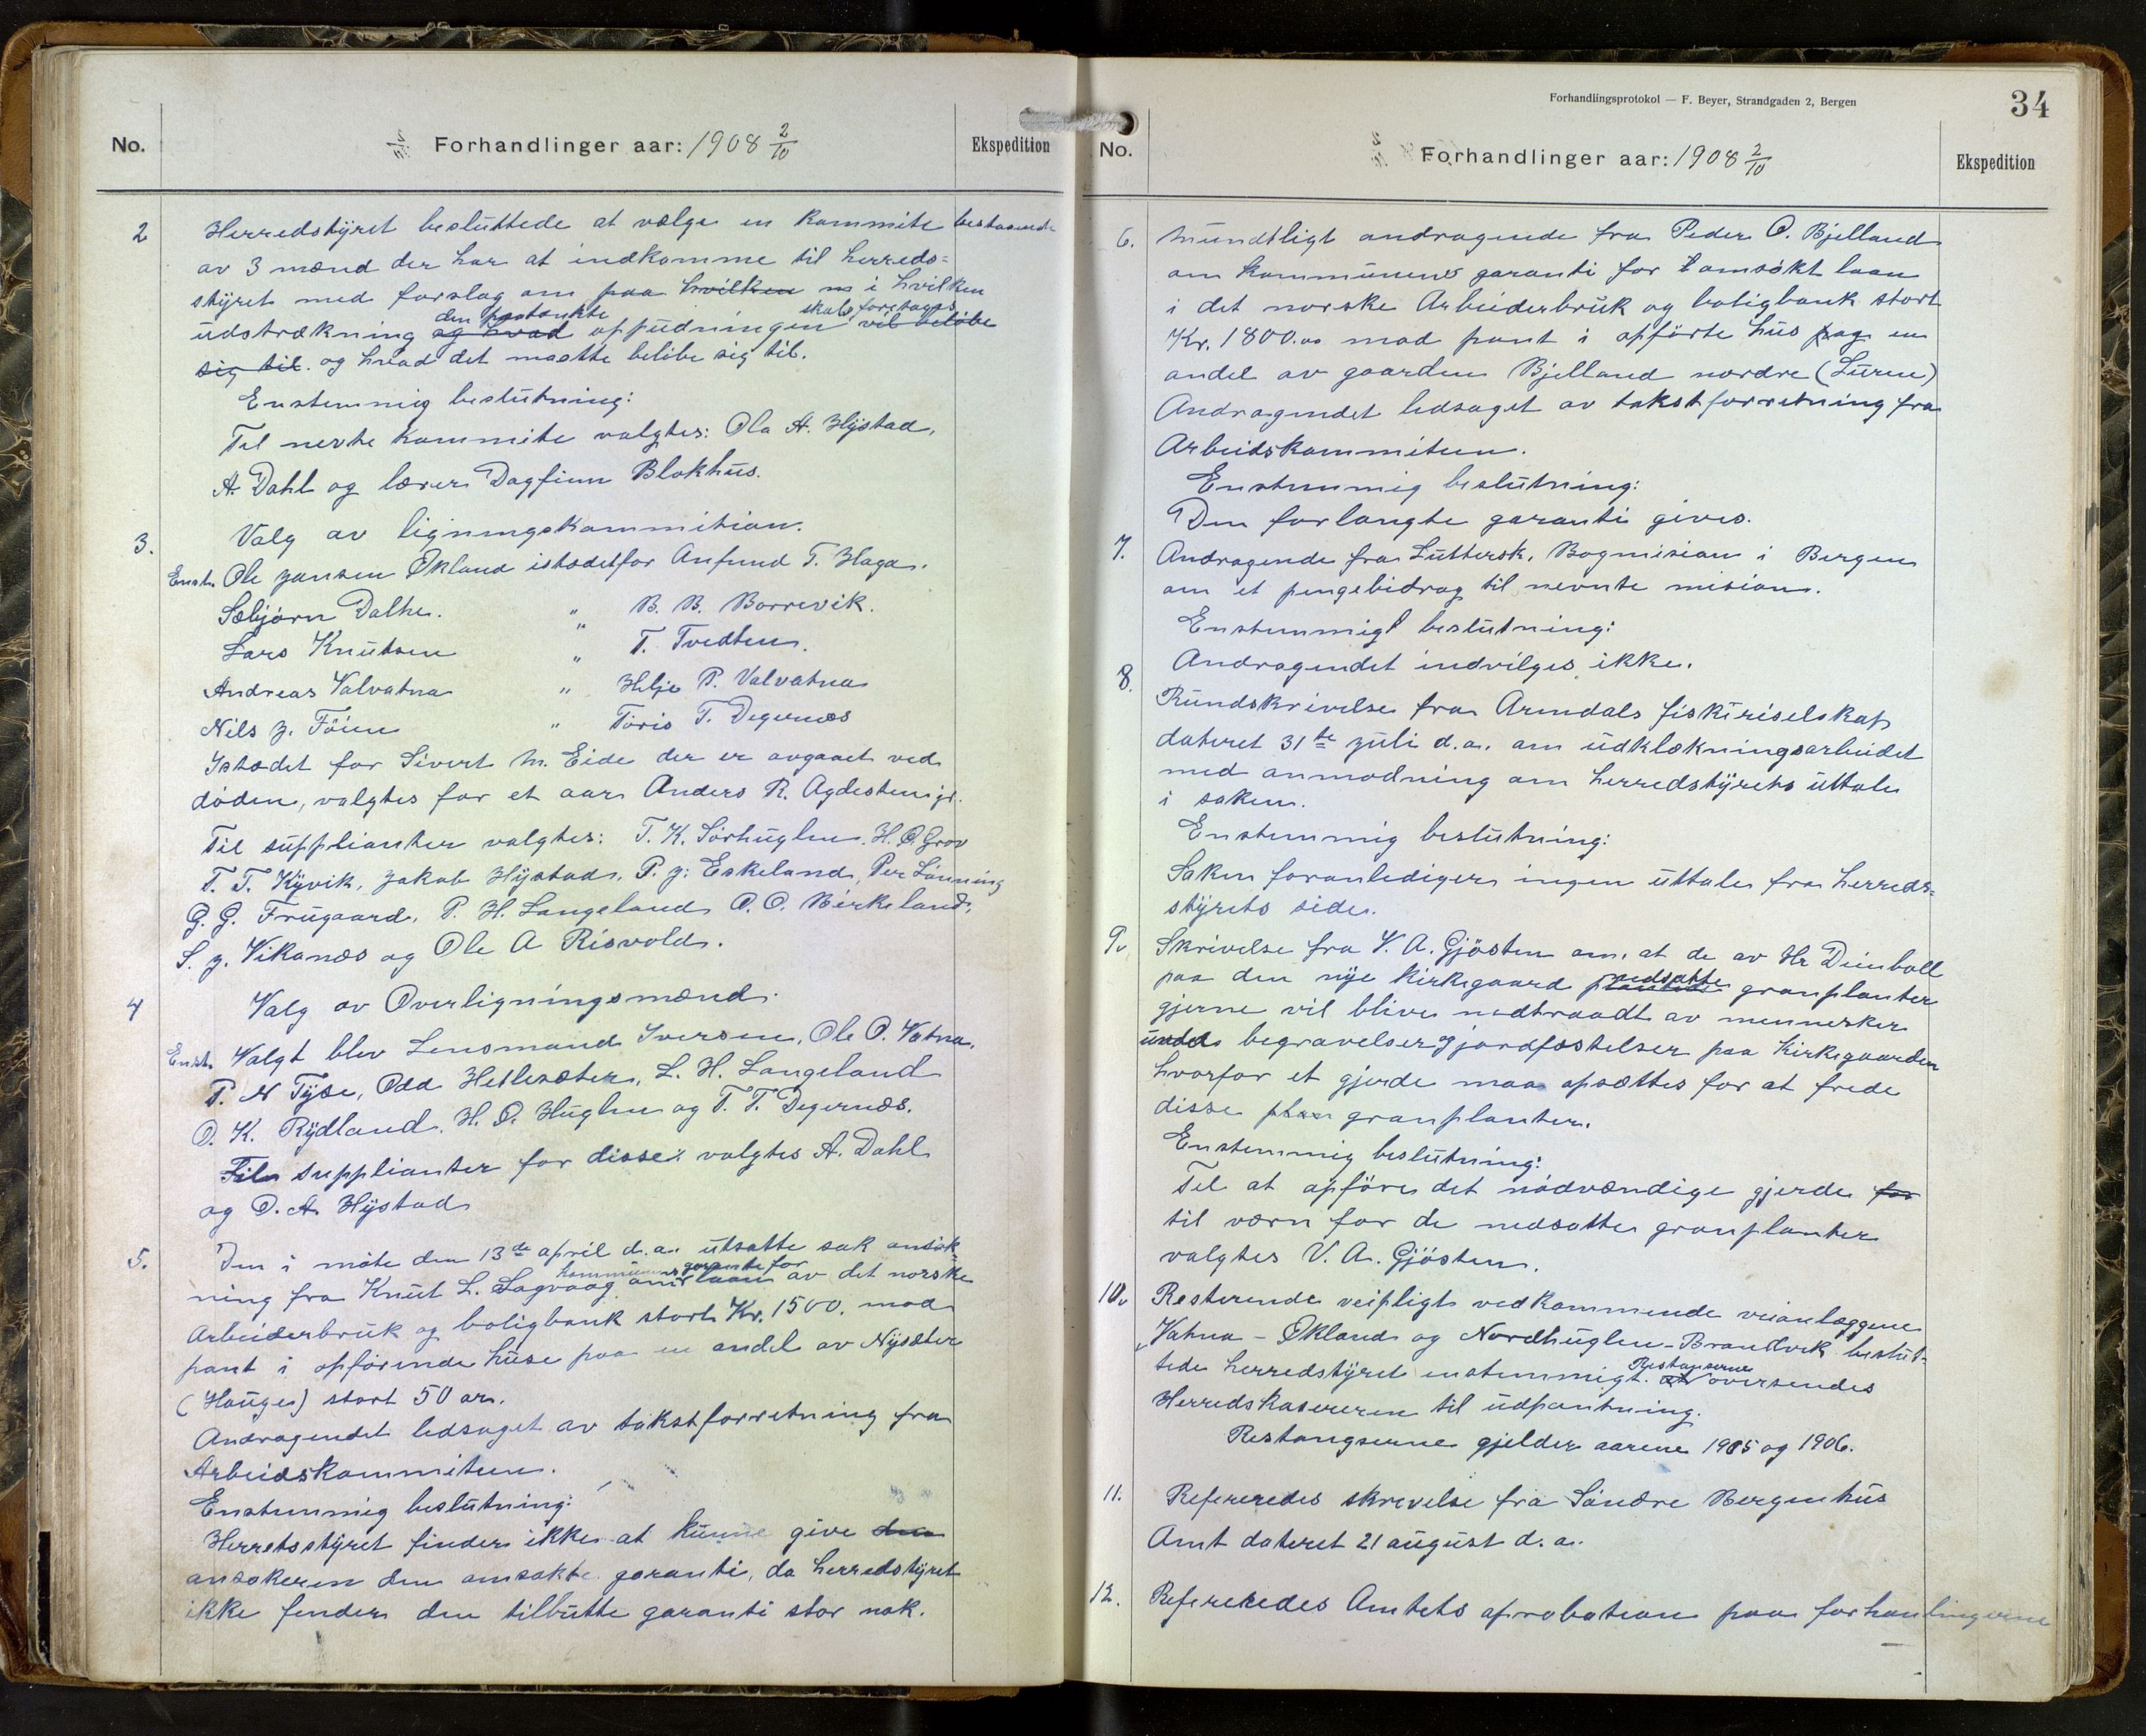 No. Forhandlinger aar: 1908 2/10 Ekspedition
2 Herredstyret besluttede at vælge en kommite bestaaende
av 3 mænd der har at indkomme til herreds=
styret med forslag om paa hvilken i hvilken
den paatænkte skal foretages
udstrækning og hvad oppudningen vil beløbe
sig til. og hvad det maatte beløbe sig til.
Enstemmig beslutning:
Til nevte kommite valgtes: Ola A. Hystad,
A. Dahl og lærer Dagfinn Blokhus.
3. Valg av ligningskommition.
Enst. Ole Jansen Økland istædetfor Anfund T. Haga.
Sæbjørn Dalhe. " B. B. Borrevik.
Lars Knutsen " T. Tvedten.
Andreas Valvatna " Helje P. Valvatna
Nils J. Föien " Töris T. Degernæs
Istædet for Sivert M. Eide der er avgaaet ved
döden, valgtes for et aar Anders R. Agdesteingr.
Til supplianter valgtes: T. K. Sörhuglen. H. O. Grov
T. T. Kyvik, Jakob Hystad, P. J. Eskeland, Per Lönning
G. G. Frugaard, P. H. Langeland O. O. Birkeland,
S. J. Vikanæs og Ole A Risvold.
4 Valg av Overligningsmænd.
Enst. Valgt blev Lensmand Iversen, Ole O. Vatna,
P. N Tyse, Odd Hetlesæter, L. H. Langeland
O. K. Rydland. H. O. Huglen og T. T. Degernæs.
Til supplianter for disse valgtes A. Dahl
og O. A. Hystad
5. Den i möte den 13de april d.a. utsatte sak ansök-
kommunes garante for
ning fra Knut L. Sagvaag om laan av det norske
Arbeiderbruk og boligbank stort Kr. 1500. mod
pant i opförende huse paa en andel av Nysæter
(Hauge) stort 50 ar.
Andragendet ledsaget av takstforretning fra
Arbeidskommiteen.
Enstemmig beslutning:
Herretsstyret finder ikke at kunne give den
ansøkeren den ansøkte garanti, da herredstyret
ikke finder den tilbutte garanti stor nok.
Forhandlingsprotokol — F. Beyer, Strandgaden 2, Bergen
34
No. Forhandlinger aar: 1908 2/10 Ekspedition
6. Mundtligt andragende fra Peder O. Bjelland
om kommunens garanti for et ansökt laan
i det norske Arbeiderbruk og boligbank stort
Kr. 1800.00 mod pant i opförte hus paa en
andel av gaarden Bjelland nordre (Lurne)
Andragendet ledsaget av takstforretning fra
Arbeidskommiteen.
Enstemmig beslutning:
Den forlangte garanti gives.
7. Andragende fra Luttersk. Bogmision i Bergen
om et pengebidrag til nevnte mision.
Enstemmigt beslutning:
Andragendet indvilges ikke.
8. Rundskrivelse fra Arendals fiskeriselskap
dateret 31te juli d.a. om udklækningsarbeidet
med anmodning om herredstyrets uttale
i saken.
Enstemmig beslutning:
Saken foranlediger ingen uttale fra herreds=
styrets side.
9. Skrivelse fra V. A. Gjösten om, at de av Hr Deinboll
nedsatte
paa den nye kirkegaard plantede granplanter
gjerne vil blive nedtraadt av mennesker
under begravelser og jordfæstelser paa kirkegaarden
hvorfor et gjerde maa opsættes for at frede
disse plan granplanter.
Enstemmig beslutning:
Til at opföre det nödvændige gjerde for
til værn for de nedsatte granplanter
valgtes V. A. Gjösten.
10. Resterende veipligt vedkommende veianlæggene
Vatna - Økland og Nordhuglen - Brandvik beslut-
Restanserne
tede herredstyret enstemmigt at oversendes
Herredskasereren til udpantning.
Restangserne gjelder aarene 1905 og 1906.
11. Refereredes skrivelse fra Söndre Bergenhus
Amt dateret 21 august d.a.
12. Refereredes Amtets aprobation paa forhanlingerne